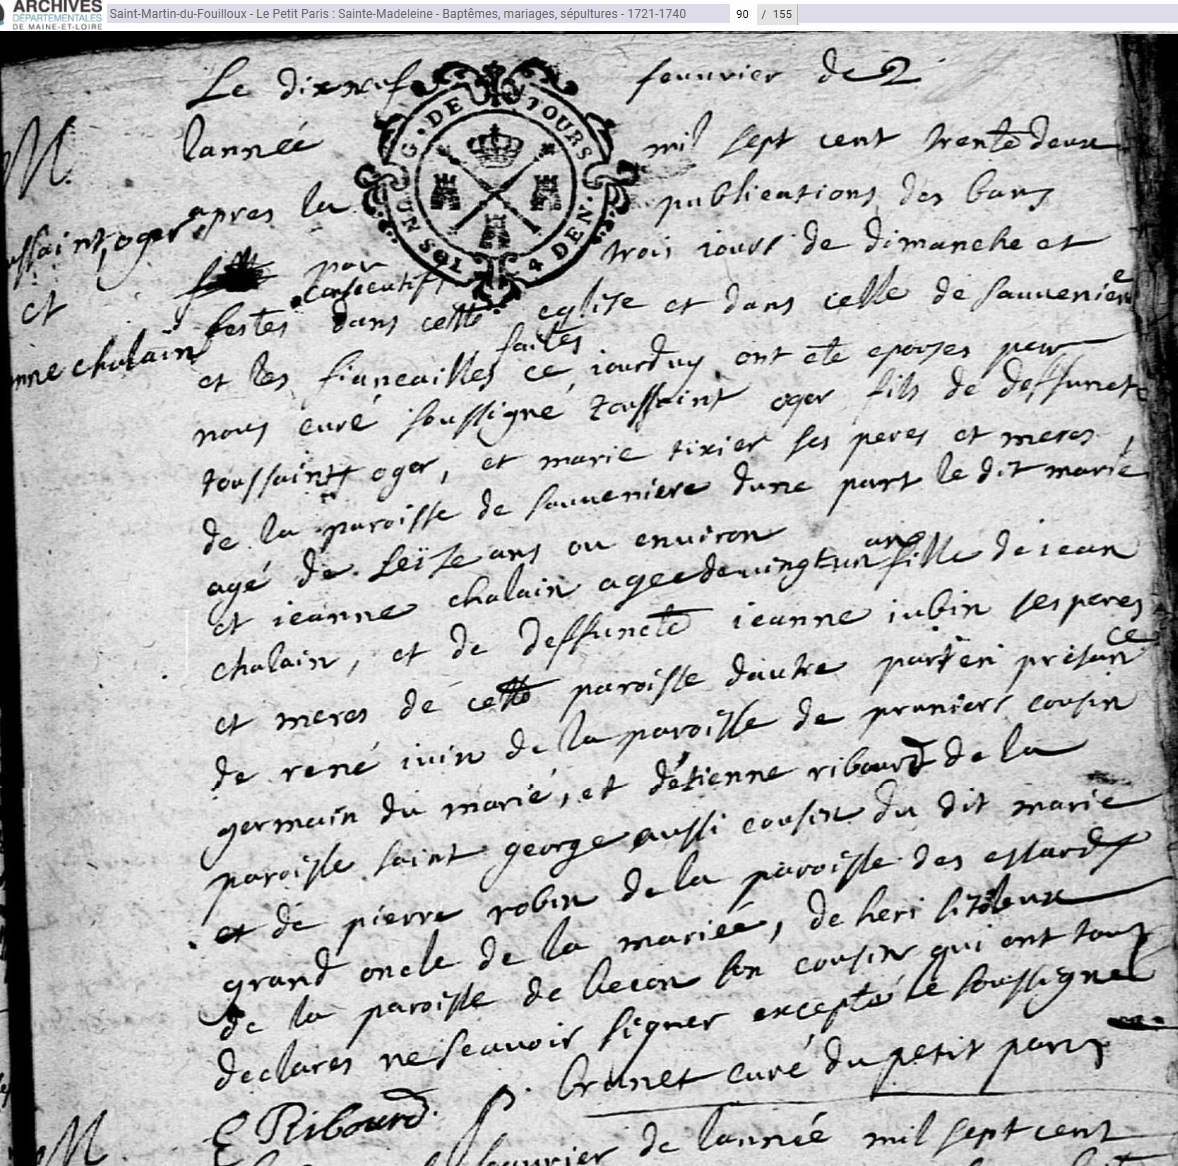 ARCHIVES
DÉPARTEMENTALES
DE MAINE-ET-LOIRE
Saint-Martin-du-Fouilloux - Le Petit Paris : Sainte-Madeleine - Baptêmes, mariages, sépultures - 1721-1740
90 / 155
M.
oger
et
chalain
G. DE TOURS
UN SOL 4 DEN.
Le dixneuf feuurier de
lannée mil sept cent trente deux
apres la publications des bans
par trois iours de dimanche et
consecutifs
festes dans cette eglise et dans celle de sauueniere
faites
et les fianeailles ce iourduy ont ete epouses par
nous curé soussigné toussaint oger fils de deffunct
toussaint oger, et marie tixier ses peres et meres,
de la paroisse de sauueniere dune part le dit marié
agé de seize ans ou environ
ans
et ieanne chalain agee de uingt un fille de iean
chalain, et de deffuncte ieanne iubin ses peres
et meres de cette paroisse dautre part en presance
de rené iuin de la paroisse de pruniers cousin
germain du marié, et détienne ribourd de la
paroisse saint george aussi cousin du dit marié
et de pierre robin de la paroisse des essards
grand oncle de la mariée, de heri
de la paroisse de becon son cousin qui ont tous
declares ne scauoir signer excepté le soussigné
E Ribourd P. brunet curé du petit paris
M.
feuurier de lannée mil sept cent